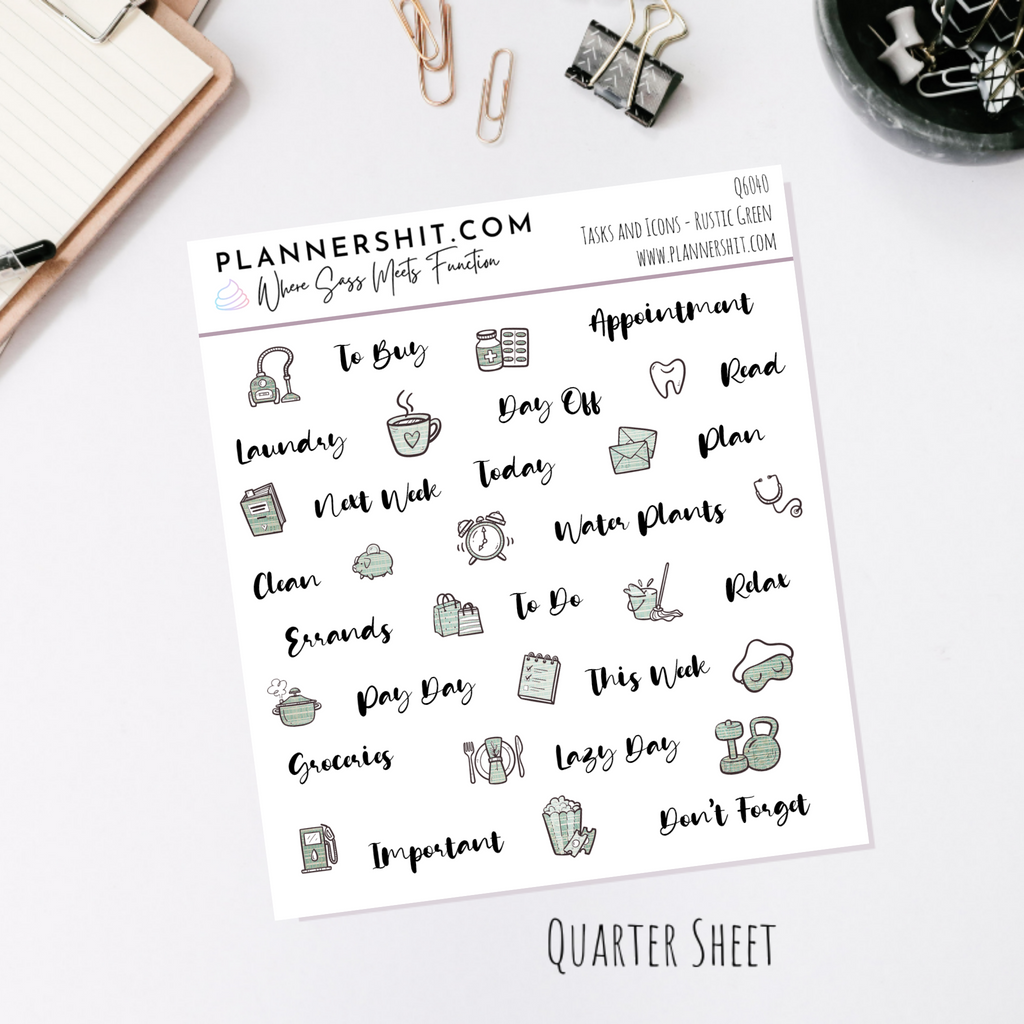 PLANNERSHIT.COM
Where Sass Meets Function
Q6040
Tasks and Icons - Rustic Green
www.plannershit.com
To Buy
Appointment
Laundry
Day Off
Read
Next Week
Today
Plan
Clean
Water Plants
Errands
To Do
Relax
Pay Day
This Week
Groceries
Lazy Day
Important
Don't Forget
Quarter Sheet